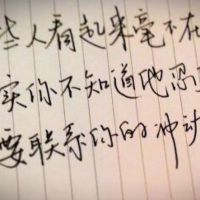 些人看起来毫不在
实你不知道他忍
要联系你的冲动